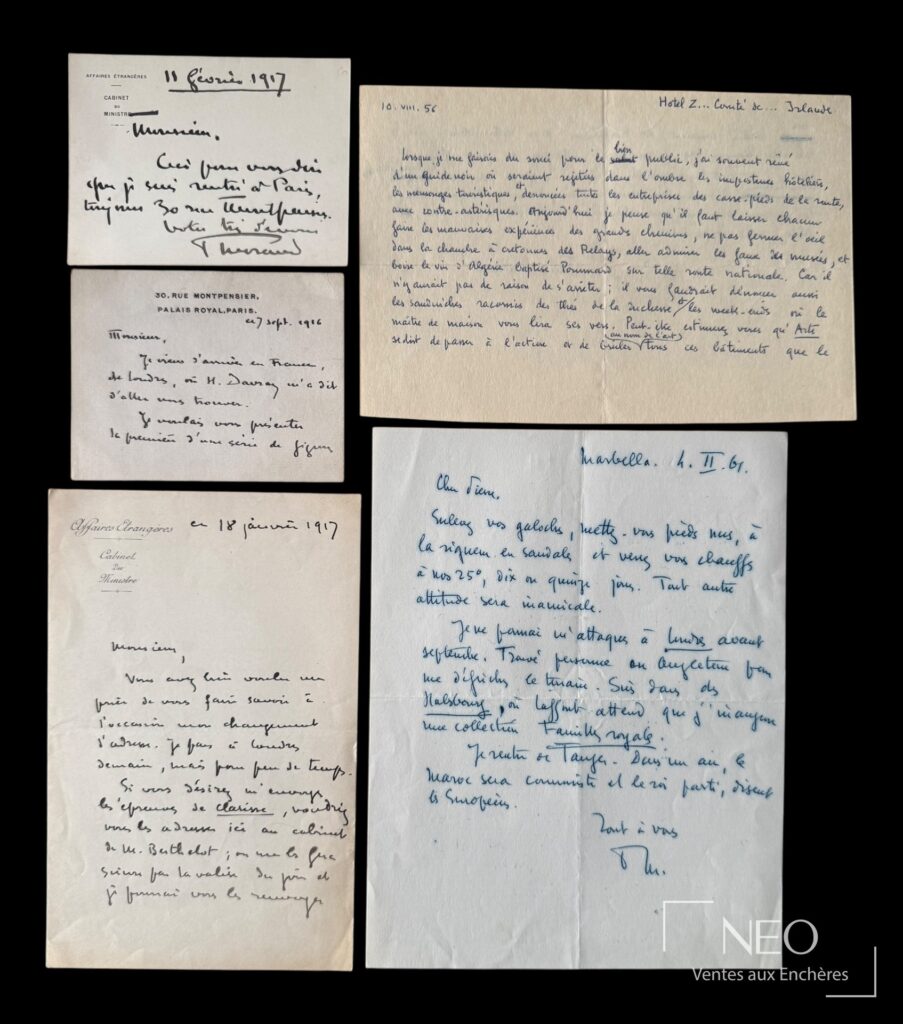 AFFAIRES ÉTRANGÈRES
CABINET
DU
MINISTRE
11 février 1917
Monsieur,
Ceci pour vous dire
que je suis rentré à Paris,
toujours 30 rue Montpensier.
Votre très dévoué
PMorand
30, RUE MONTPENSIER,
PALAIS ROYAL, PARIS.
ce 7 sept. 1916
Monsieur,
Je viens d'arriver en France,
de Londres, où H. Davray m'a dit
d'aller vous trouver.
Je voulais vous présenter
la première d'une série de
Affaires Étrangères
Cabinet
du
Ministre
ce 18 janvier 1917
Monsieur,
Vous avez bien voulu me
prier de vous faire savoir à
l'occasion mon changement
d'adresse. Je pars à Londres
demain, mais pour peu de temps.
Si vous désirez m'envoyer
les épreuves de Clarisse, voudriez
vous les adresser ici au cabinet
de M. Berthelot ; on me les fera
suivre par la valise du jour et
je pourrai vous les renvoyer
10. VIII. 56
Hotel Z... Comté de... Irlande
Lorsque je me faisais du souci pour le bien public, j'ai souvent rêvé
d'un guide noir où seraient rejetées dans l'ombre les impostures hôtelières,
les mensonges touristiques et dénoncées toutes les entreprises des casse-pieds de la route,
avec contre-astérisques. Aujourd'hui je pense qu'il faut laisser chacun
faire les mauvaises expériences des grands chemins, ne pas fermer l'oeil
dans la chambre à cretonnes des Relays, aller admirer les faux des musées, et
boire le vin d'Algérie baptisé Pommard sur telle route nationale. Car il
n'y aurait pas de raison de s'arrêter ; il vous faudrait dénoncer aussi
les sandwiches racornis des thés de la duchesse et les week-ends où le
maître de maison vous lira ses vers. Peut-être estimerez vous qu'Arts
se doit de passer à l'action et de (au nom de l'art) tous ces bâtiments que le
Marbella. 4. II. 61.
Cher Pierre,
Enlevez vos galoches, mettez-vous pieds nus, à
la rigueur en sandales et venez vous chauffer
à nos 25°, dix ou quinze jours. Tout autre
attitude sera inamicale.
Je ne pourrai m'attaquer à Londres avant
septembre. Trouvé personne en Angleterre pour
me défricher le terrain. Suis dans des
Habsbourg, où Laffont attend que j'inaugure
une collection Familles royales.
Je rentre de Tanger. Dans un an, le
Maroc sera communiste et le roi parti, disent
les Européens.
Tout à vous
PM.
NEO
Ventes aux Enchères